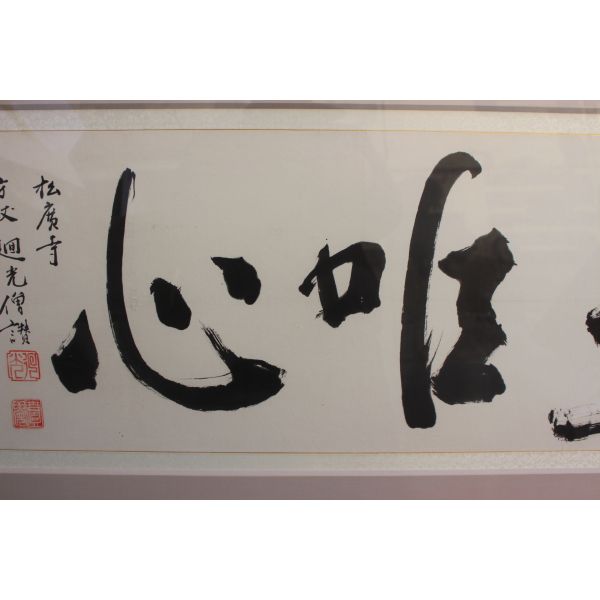 唯心
松廣寺
方丈 廻光僧讚